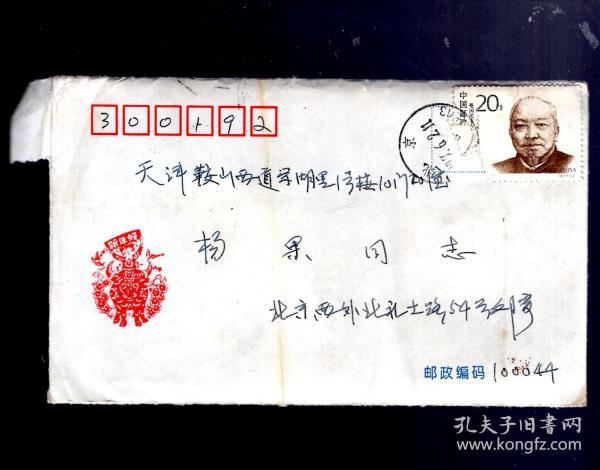 300192
中国邮政
20分
京
天津鞍山西道学湖里1号楼1017
杨果同志
北京西外北礼士路54号
邮政编码 100044
新年好
孔夫子旧书网
www.kongfz.com